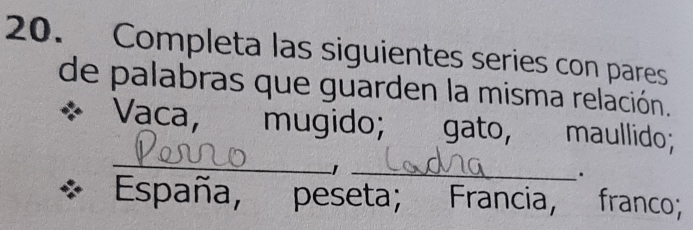 20. Completa las siguientes series con pares
de palabras que guarden la misma relación.
❖ Vaca, mugido; gato, maullido;
Perro, Ladra.
❖ España, peseta; Francia, franco;